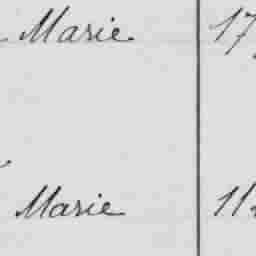 Marie 17
Marie 11